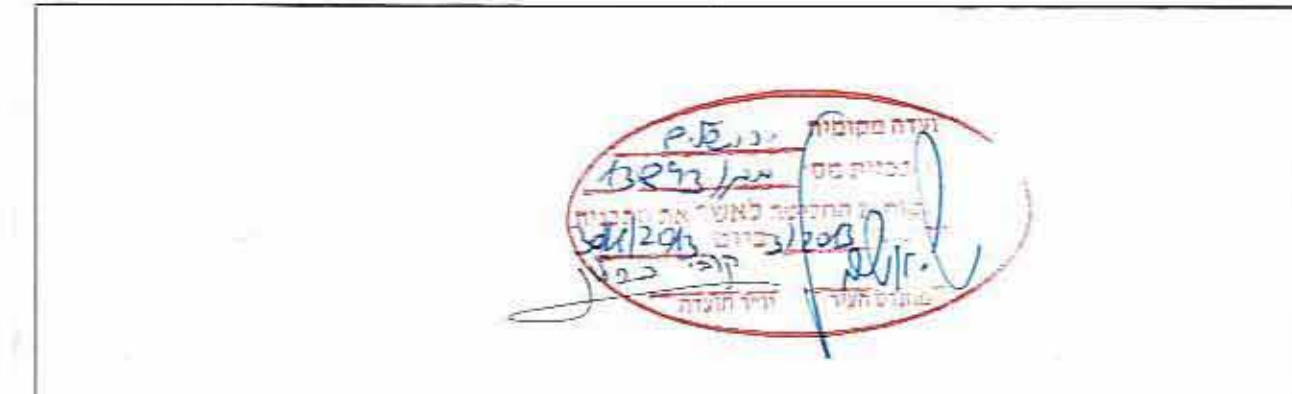 ועדה מקומית ירושלים
תכנית מס 13893/מק
החליטה לאשר את התכנית
3/2013 ביום 30/1/2013
קובי כחלון
מהנדס העיר יו״ר הועדה